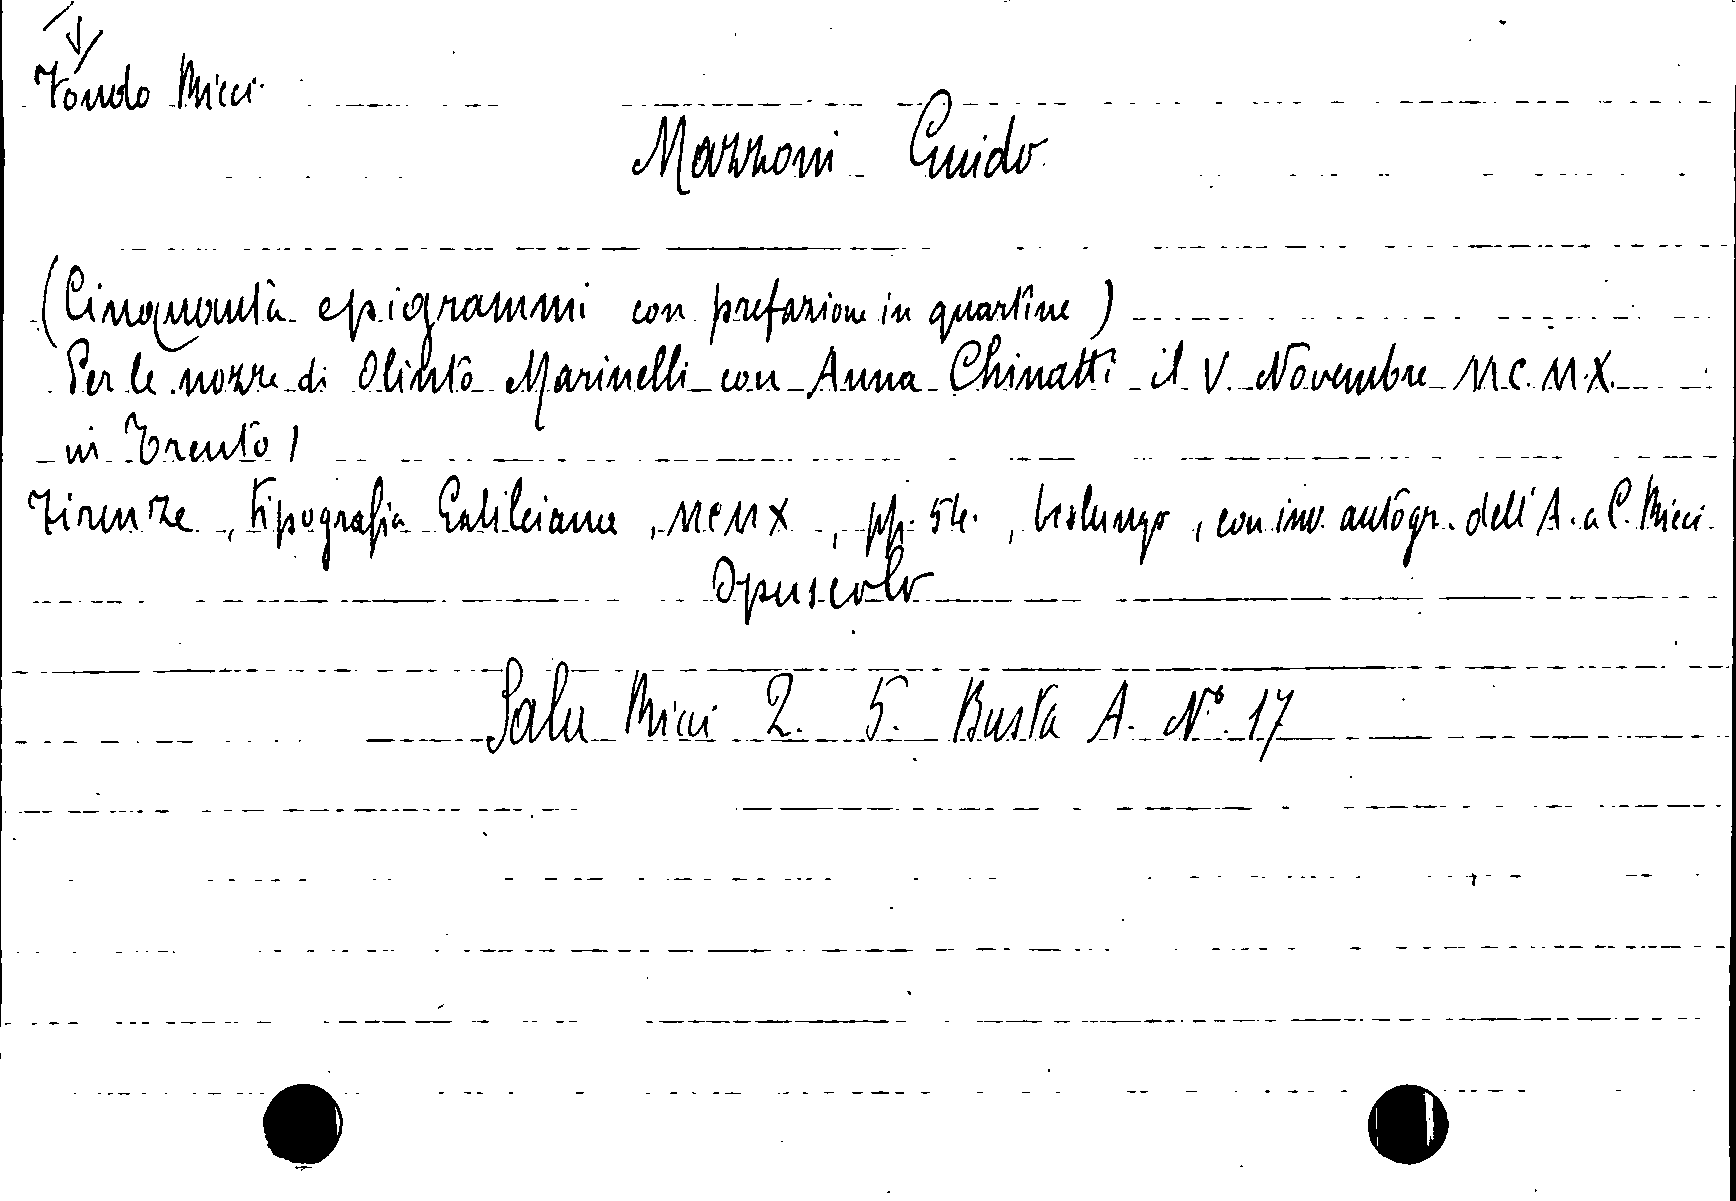 Fondo Ricci
Mazzoni Guido
(Cinquanta epigrammi con prefazione in quartine)
Per le nozze di Olinto Marinelli con Anna Chinatti il V Novembre MC.MX.
in Trento /
Firenze, Tipografia Galileiana, MCMX, pp. 54., bislungo, con inv. autogr. dell'A. a C. Ricci.
Opuscolo
Sala Ricci 2. 5. Busta A. N° 17